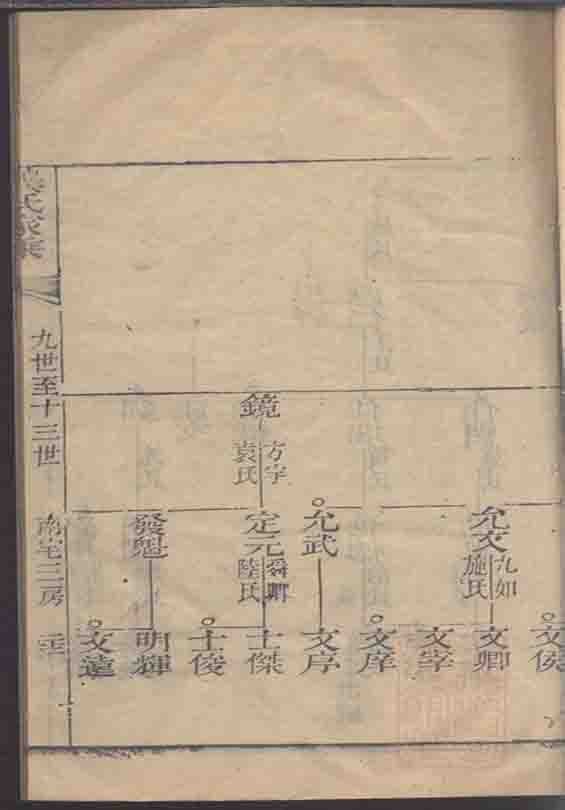 氏家乘
九世至十三世
南宅三房
鏡
方宇
袁氏
允文
九如
施氏
允武
定元
舜卿
陸氏
發魁
文侯
文卿
文宰
文庠
文序
士傑
士俊
明輝
文達